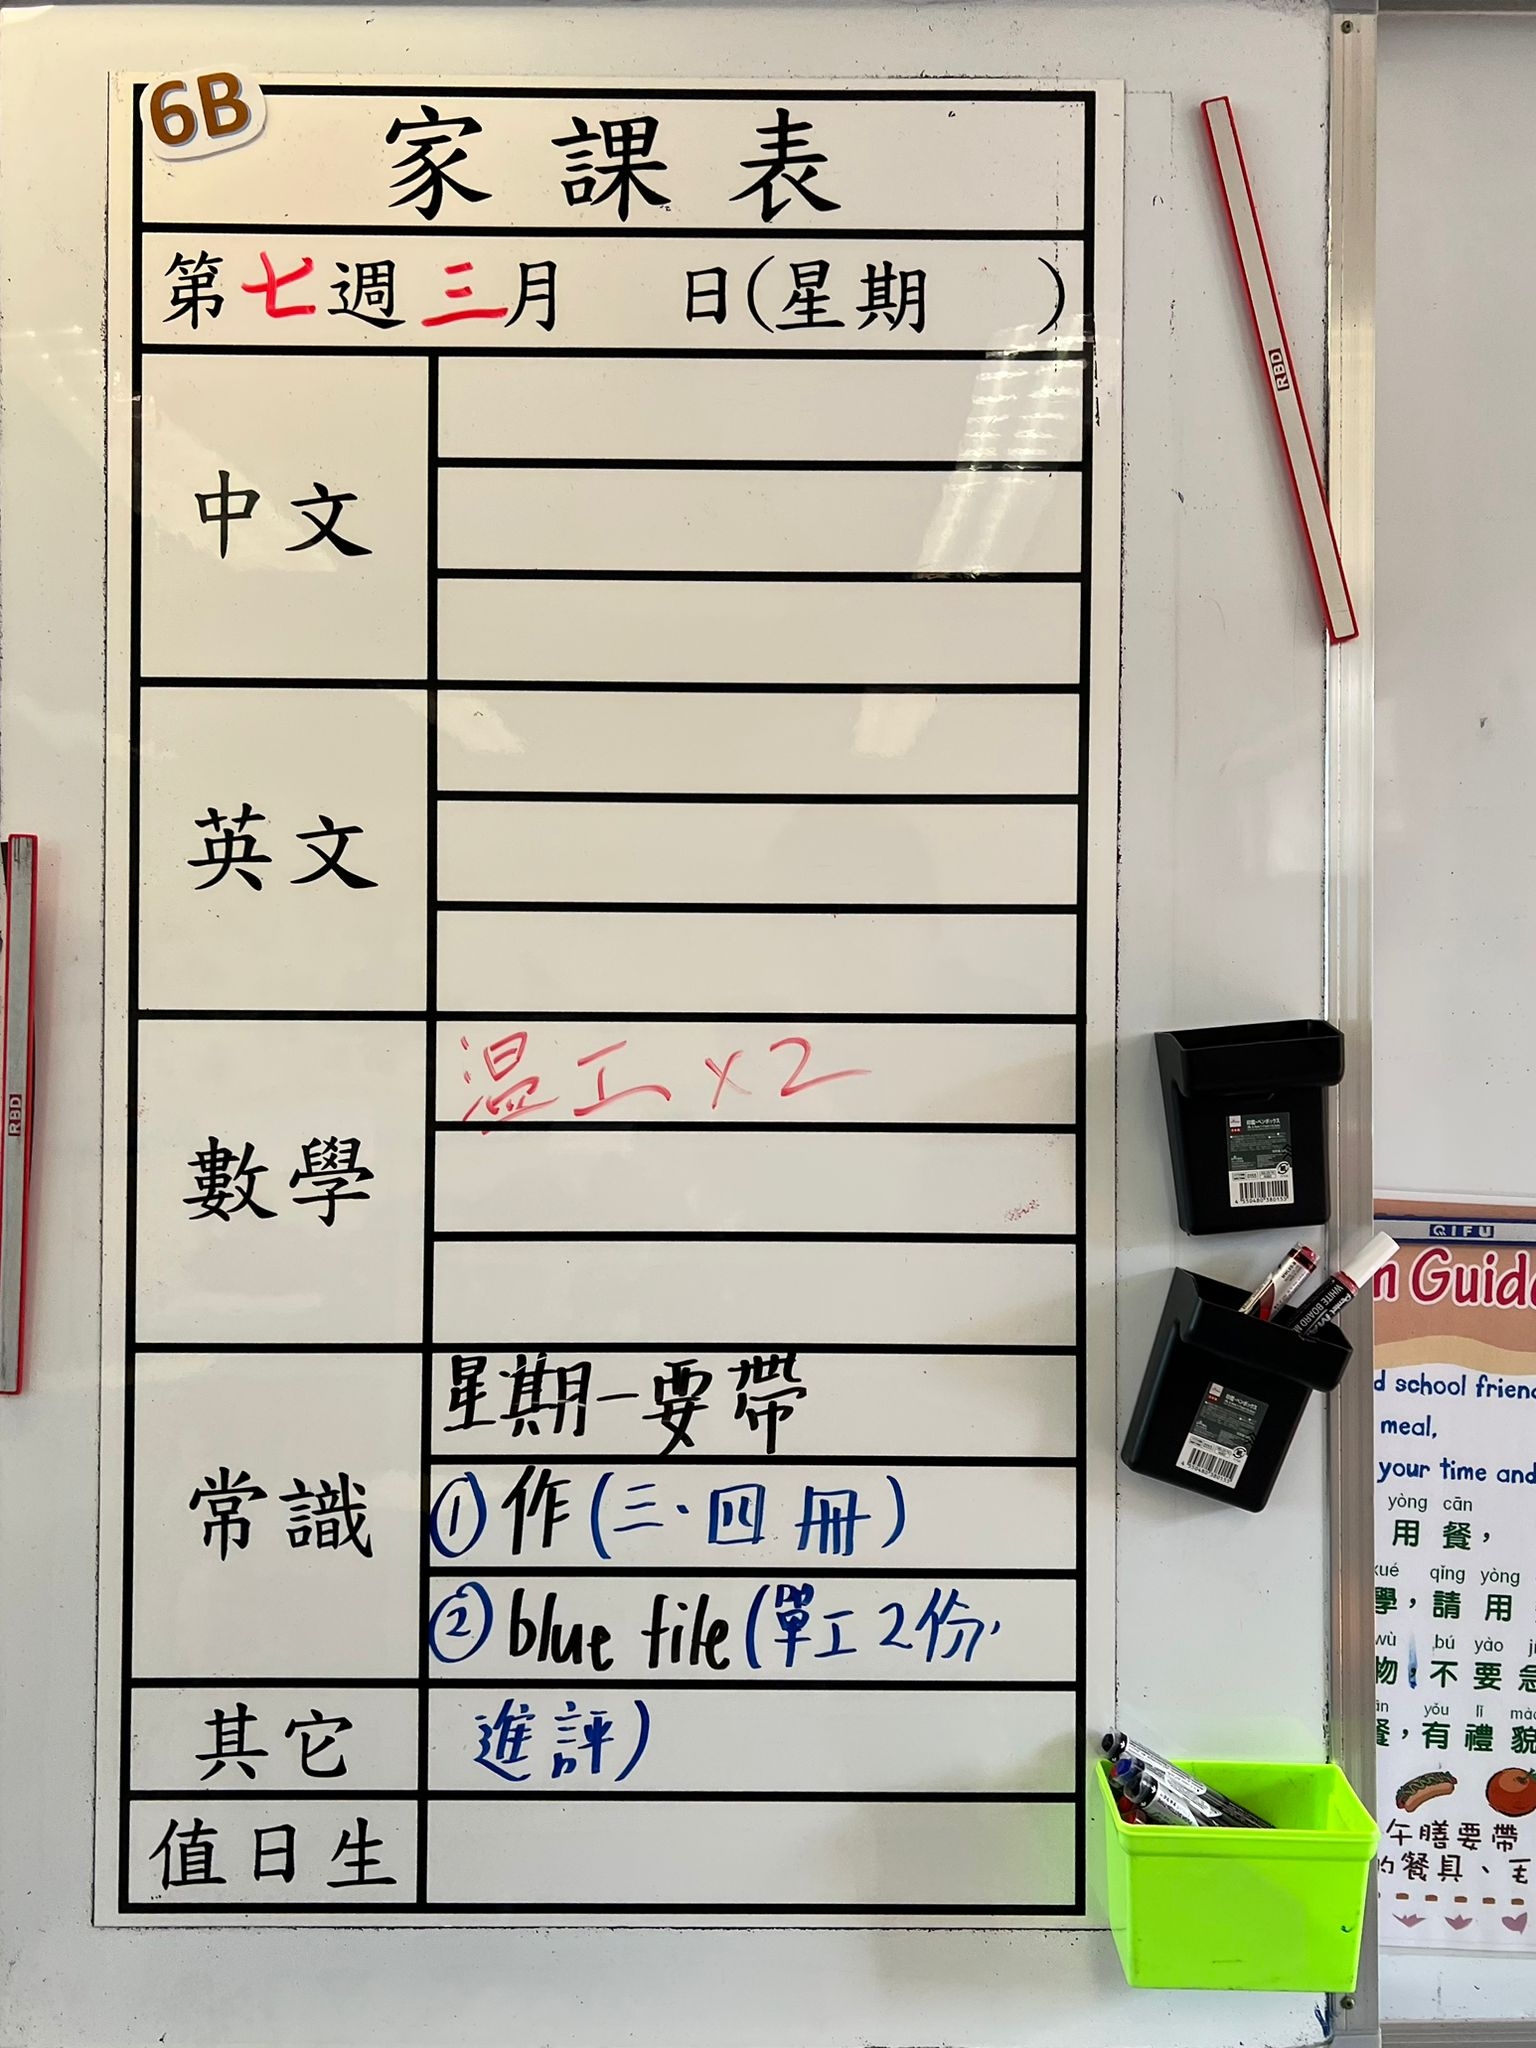 6B
家課表
第七週三月 日(星期 )
中文
英文
數學
溫工 x2
常識
星期一要帶
① 作(三.四冊)
② blue file(單工2份,
其它
進評)
值日生
RBD
RBD
QIFU
n Guide
d school friend
meal,
your time and
yòng cān
用餐，
xué qǐng yòng
學，請用
wù bú yào
物，不要急
yǒu lǐ mào
餐，有禮貌
午膳要帶
的餐具、毛
WHITE BOARD M
4 550480 380155
4 550480 380155